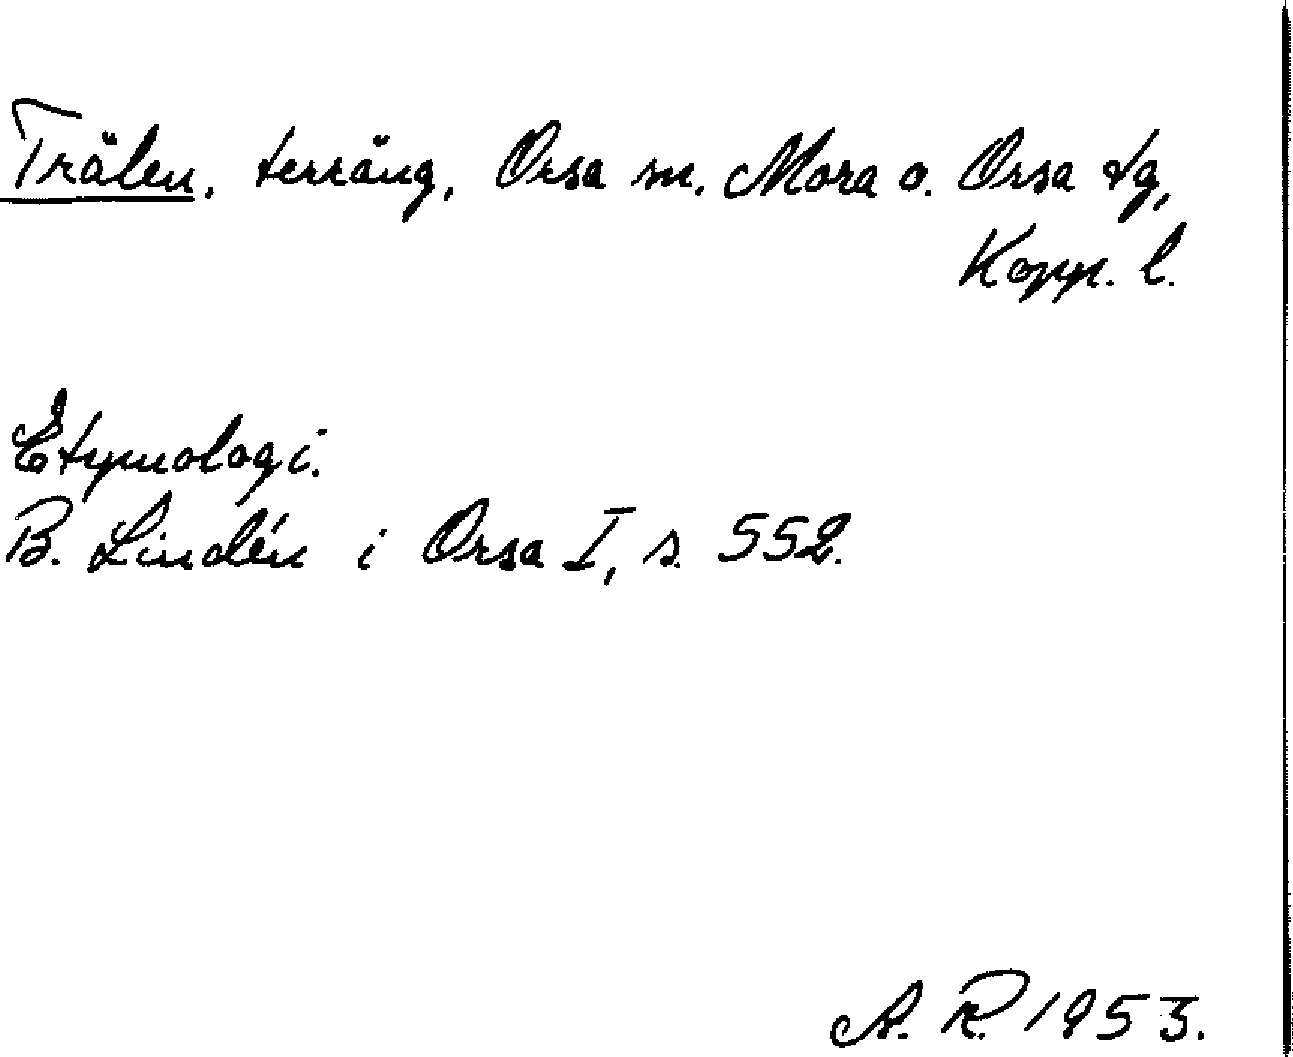 Trälen, terräng, Orsa sn. Mora o. Orsa tg,
Kopp. l.
Etymologi.
B. Lindén i Orsa I, s. 552.
A. R. 1953.